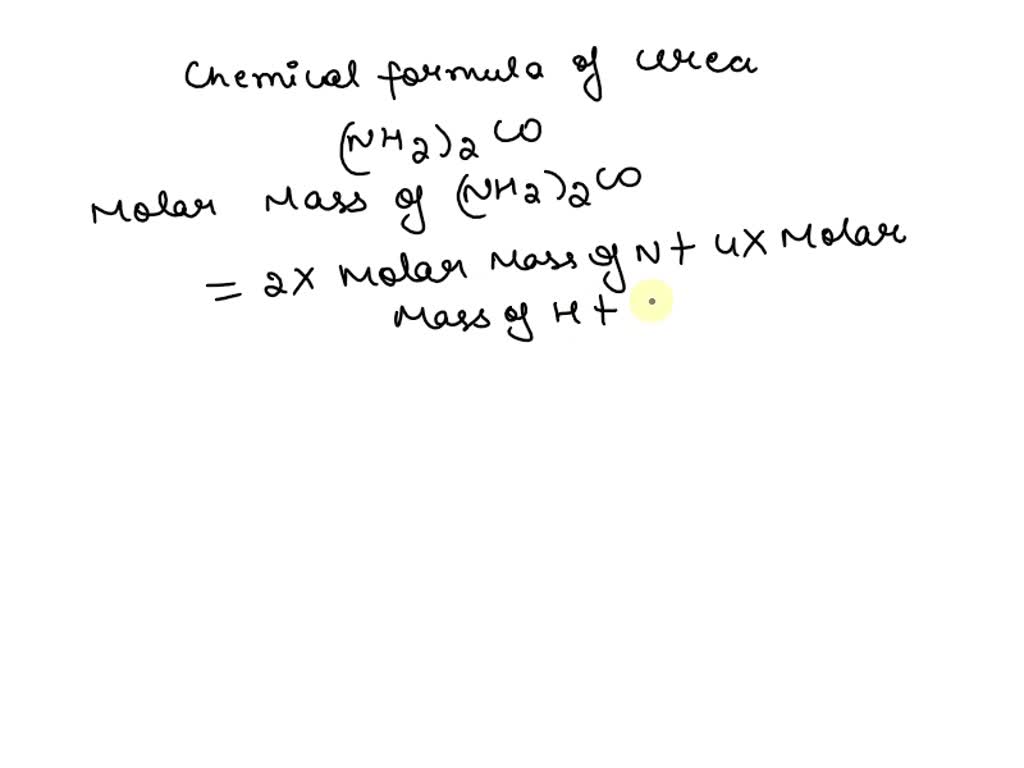 Chemical formula of urea
(NH2)2 CO
Molar Mass of (NH2)2CO
= 2X Molar Mass of N + 4X Molar
Mass of H +